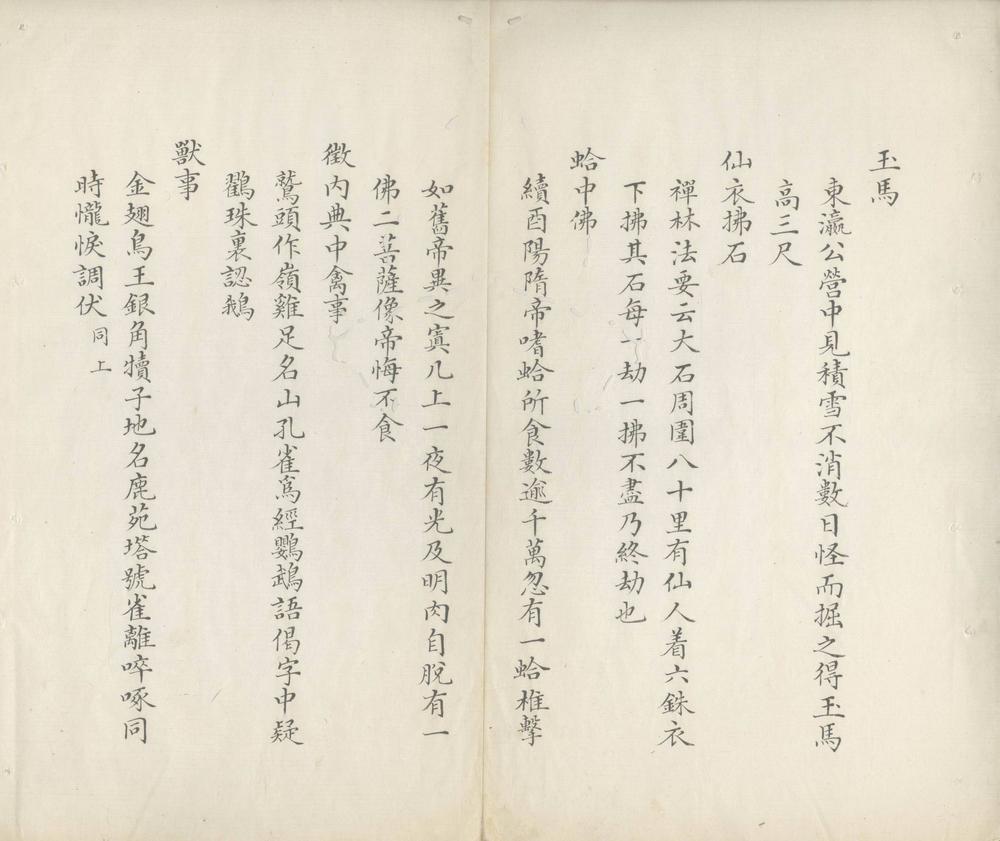 玉馬
東瀛公營中見積雪不消數日怪而掘之得玉馬
高三尺
仙衣拂石
禪林法要云大石周圍八十里有仙人着六銖衣
下拂其石每一劫一拂不盡乃終劫也
蛤中佛
續酉陽隋帝嗜蛤所食數逾千萬忽有一蛤椎擊
如舊帝異之寘几上一夜有光及明肉自脫有一
佛二菩薩像帝悔不食
徵內典中禽事
鷲頭作嶺雞足名山孔雀爲經鸚鵡語偈字中疑
鸛珠裏認鵝
獸事
金翅鳥王銀角犢子地名鹿苑塔號雀離啐啄同
時儱悷調伏同上